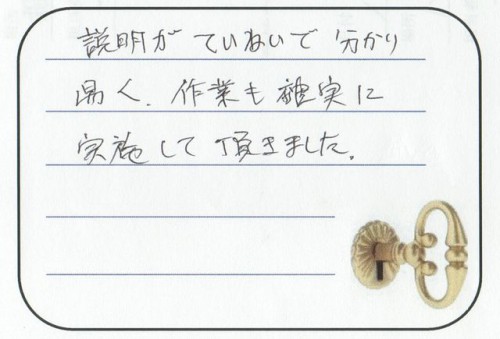 説明がていねいで分かり
易く、作業も確実に
実施して頂きました。